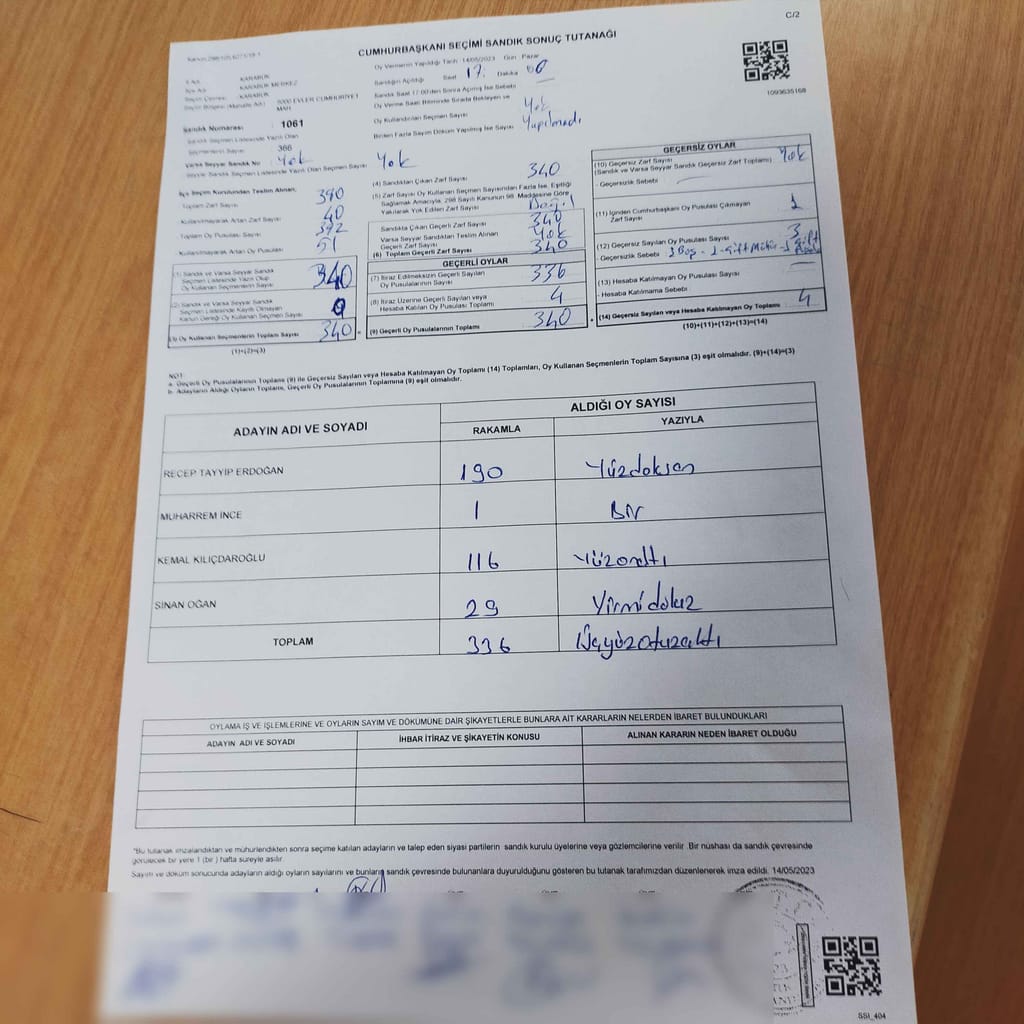 C/2
CUMHURBAŞKANI SEÇİMİ SANDIK SONUÇ TUTANAĞI
1093635168
Oy Vermenin Yapıldığı Tarih 14/05/2023 Gün Pazar
Sandığın Açıldığı Saat 17: Dakika 00
Sandık Saat 17.00'den Sonra Açılmış İse Sebebi
Oy Verme Saati Bitiminde Sırada Bekleyen ve
Oy Kullandırılan Seçmen Sayısı Yok
Birden Fazla Sayım Döküm Yapılmış İse Sayısı Yapılmadı
KARABÜK
KARABÜK MERKEZ
KARABÜK
5000 EVLER CUMHURİYET
MAH.
Sandık Numarası : 1061
Sandık Seçmen Listesinde Yazılı Olan
Seçmenlerin Sayısı 366
Varsa Seyyar Sandık No Yok
Seyyar Sandık Seçmen Listesinde Yazılı Olan Seçmen Sayısı Yok
İlçe Seçim Kurulundan Teslim Alınan,
Toplam Zarf Sayısı
Kullanılmayarak Artan Zarf Sayısı 40
Toplam Oy Pusulası Sayısı
Kullanılmayarak Artan Oy Pusulası 51
(1) Sandık ve Varsa Seyyar Sandık
Seçmen Listesinde Yazılı Olup
Oy Kullanan Seçmenlerin Sayısı 340
(2) Sandık ve Varsa Seyyar Sandık
Seçmen Listesinde Kayıtlı Olmayan
Kanun Gereği Oy Kullanan Seçmen Sayısı 0
(3) Oy Kullanan Seçmenlerin Toplam Sayısı 340
(1)+(2)=(3)
(4) Sandıktan Çıkan Zarf Sayısı 340
(5) Zarf Sayısı Oy Kullanan Seçmen Sayısından Fazla İse, Eşitliği
Sağlamak Amacıyla, 298 Sayılı Kanunun 98. Maddesine Göre
Yakılarak Yok Edilen Zarf Sayısı Değil
Sandıkta Çıkan Geçerli Zarf Sayısı 340
Varsa Seyyar Sandıktan Teslim Alınan
Geçerli Zarf Sayısı Yok
(6) Toplam Geçerli Zarf Sayısı 340
GEÇERLİ OYLAR
(7) İtiraz Edilmeksizin Geçerli Sayılan
Oy Pusulasının Sayısı 336
(8) İtiraz Üzerine Geçerli Sayılan veya
Hesaba Katılan Oy Pusulası Toplamı 4
(9) Geçerli Oy Pusulalarının Toplamı 340
GEÇERSİZ OYLAR
(10) Geçersiz Zarf Sayısı
(Sandık ve Varsa Seyyar Sandık Geçersiz Zarf Toplamı) Yok
- Geçersizlik Sebebi
(11) İçinden Cumhurbaşkanı Oy Pusulası Çıkmayan
Zarf Sayısı 1
(12) Geçersiz Sayılan Oy Pusulası Sayısı 3
- Geçersizlik Sebebi 1 Boş - 1 - Çift Mühür - 1 Çift
(13) Hesaba Katılmayan Oy Pusulası Sayısı
- Hesaba Katılmama Sebebi
(14) Geçersiz Sayılan veya Hesaba Katılmayan Oy Toplamı 4
(10)+(11)+(12)+(13)=(14)
NOT:
a. Geçerli Oy Pusulalarının Toplamı (9) ile Geçersiz Sayılan veya Hesaba Katılmayan Oy Toplamı (14) Toplamları, Oy Kullanan Seçmenlerin Toplam Sayısına (3) eşit olmalıdır. (9)+(14)=(3)
b. Adayların Aldığı Oyların Toplamı, Geçerli Oy Pusulalarının Toplamına (9) eşit olmalıdır.
ADAYIN ADI VE SOYADI ALDIĞI OY SAYISI
RAKAMLA YAZIYLA
RECEP TAYYİP ERDOĞAN 190 Yüzdoksan
MUHARREM İNCE 1 Bir
KEMAL KILIÇDAROĞLU 116 Yüzonaltı
SİNAN OĞAN 29 Yirmidokuz
TOPLAM 336 Üçyüzotuzaltı
OYLAMA İŞ VE İŞLEMLERİNE VE OYLARIN SAYIM VE DÖKÜMÜNE DAİR ŞİKAYETLERLE BUNLARA AİT KARARLARIN NELERDEN İBARET BULUNDUKLARI
ADAYIN ADI VE SOYADI İHBAR İTİRAZ VE ŞİKAYETİN KONUSU ALINAN KARARIN NEDEN İBARET OLDUĞU
*Bu tutanak imzalandıktan ve mühürlendikten sonra seçime katılan adayların ve talep eden siyasi partilerin sandık kurulu üyelerine veya gözlemcilerine verilir. Bir nüshası da sandık çevresinde
görülecek bir yere 1 (bir) hafta süreyle asılır.
Sayım ve döküm sonucunda adayların aldığı oyların sayılarını ve bunların sandık çevresinde bulunanlara duyurulduğunu gösteren bu tutanak tarafımızdan düzenlenerek imza edildi. 14/05/2023
SSI_404